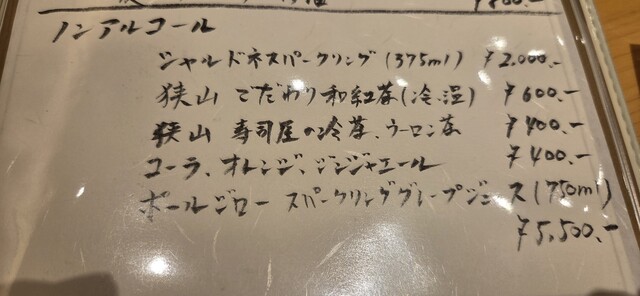 ¥800.-
ノンアルコール
シャルドネスパークリング(375ml) ¥2,000.-
狭山 こだわり和紅茶(冷・温) ¥600.-
狭山 寿司屋の冷茶、ウーロン茶 ¥400.-
コーラ、オレンジ、ジンジャエール ¥400.-
ポールジロー スパークリンググレープジュース(750ml)
¥5,500.-